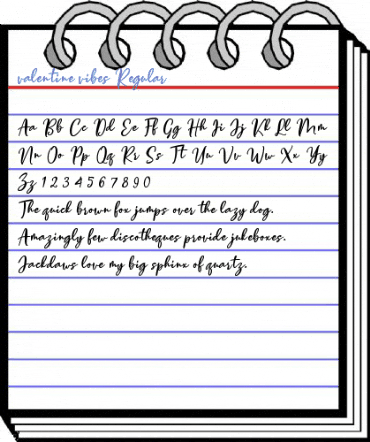 valentine vibes Regular
Aa Bb Cc Dd Ee Ff Gg Hh Ii Jj Kk Ll Mm
Nn Oo Pp Qq Rr Ss Tt Uu Vv Ww Xx Yy
Zz 1 2 3 4 5 6 7 8 9 0
The quick brown fox jumps over the lazy dog.
Amazingly few discotheques provide jukeboxes.
Jackdaws love my big sphinx of quartz.